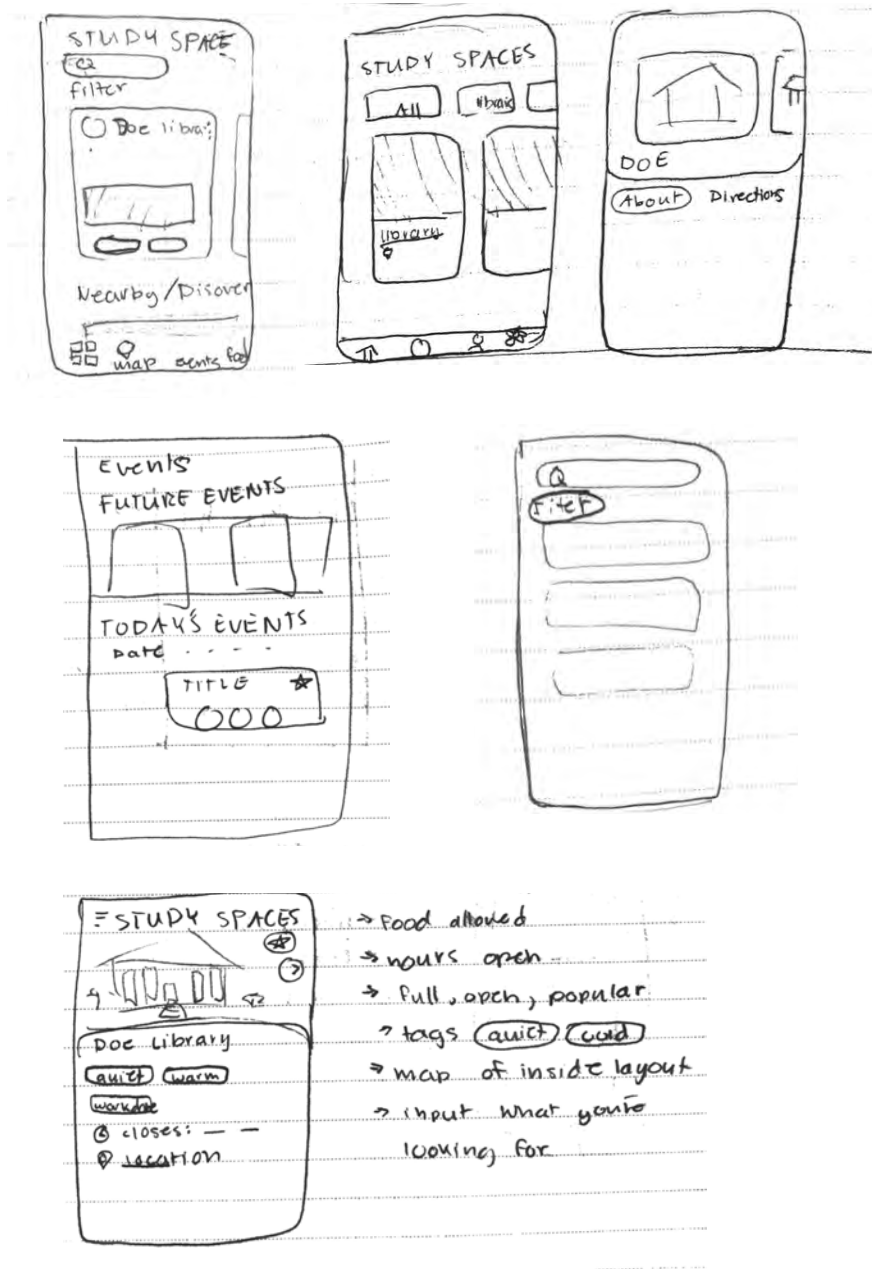 STUDY SPACE
filter
Doe librar
Nearby/Disover
map events food
STUDY SPACES
All librari
library
DOE
About Directions
Events
FUTURE EVENTS
TODAY'S EVENTS
Date
TITLE
Filter
STUDY SPACES
Doe Library
quiet warm
closes:
Location
→ Food allowed
→ hours open
→ full, open, popular
→ tags quiet cold
→ map of inside layout
→ input what you're
looking for